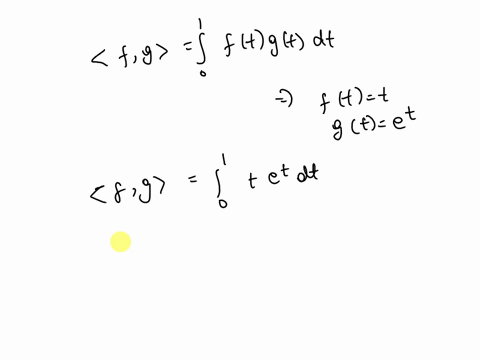 < f, g > = ∫₀¹ f(t) g(t) dt
=> f(t) = t
g(t) = e^t
< f, g > = ∫₀¹ t e^t dt